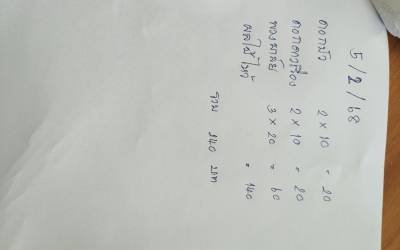 5/2/68
ดอกบัว 2 × 10 = 20
ดอกดาวเรือง 2 × 10 = 20
พวงมาลัย 3 × 20 = 60
ผลไม้ไหว้ = 140
รวม 240 บาท